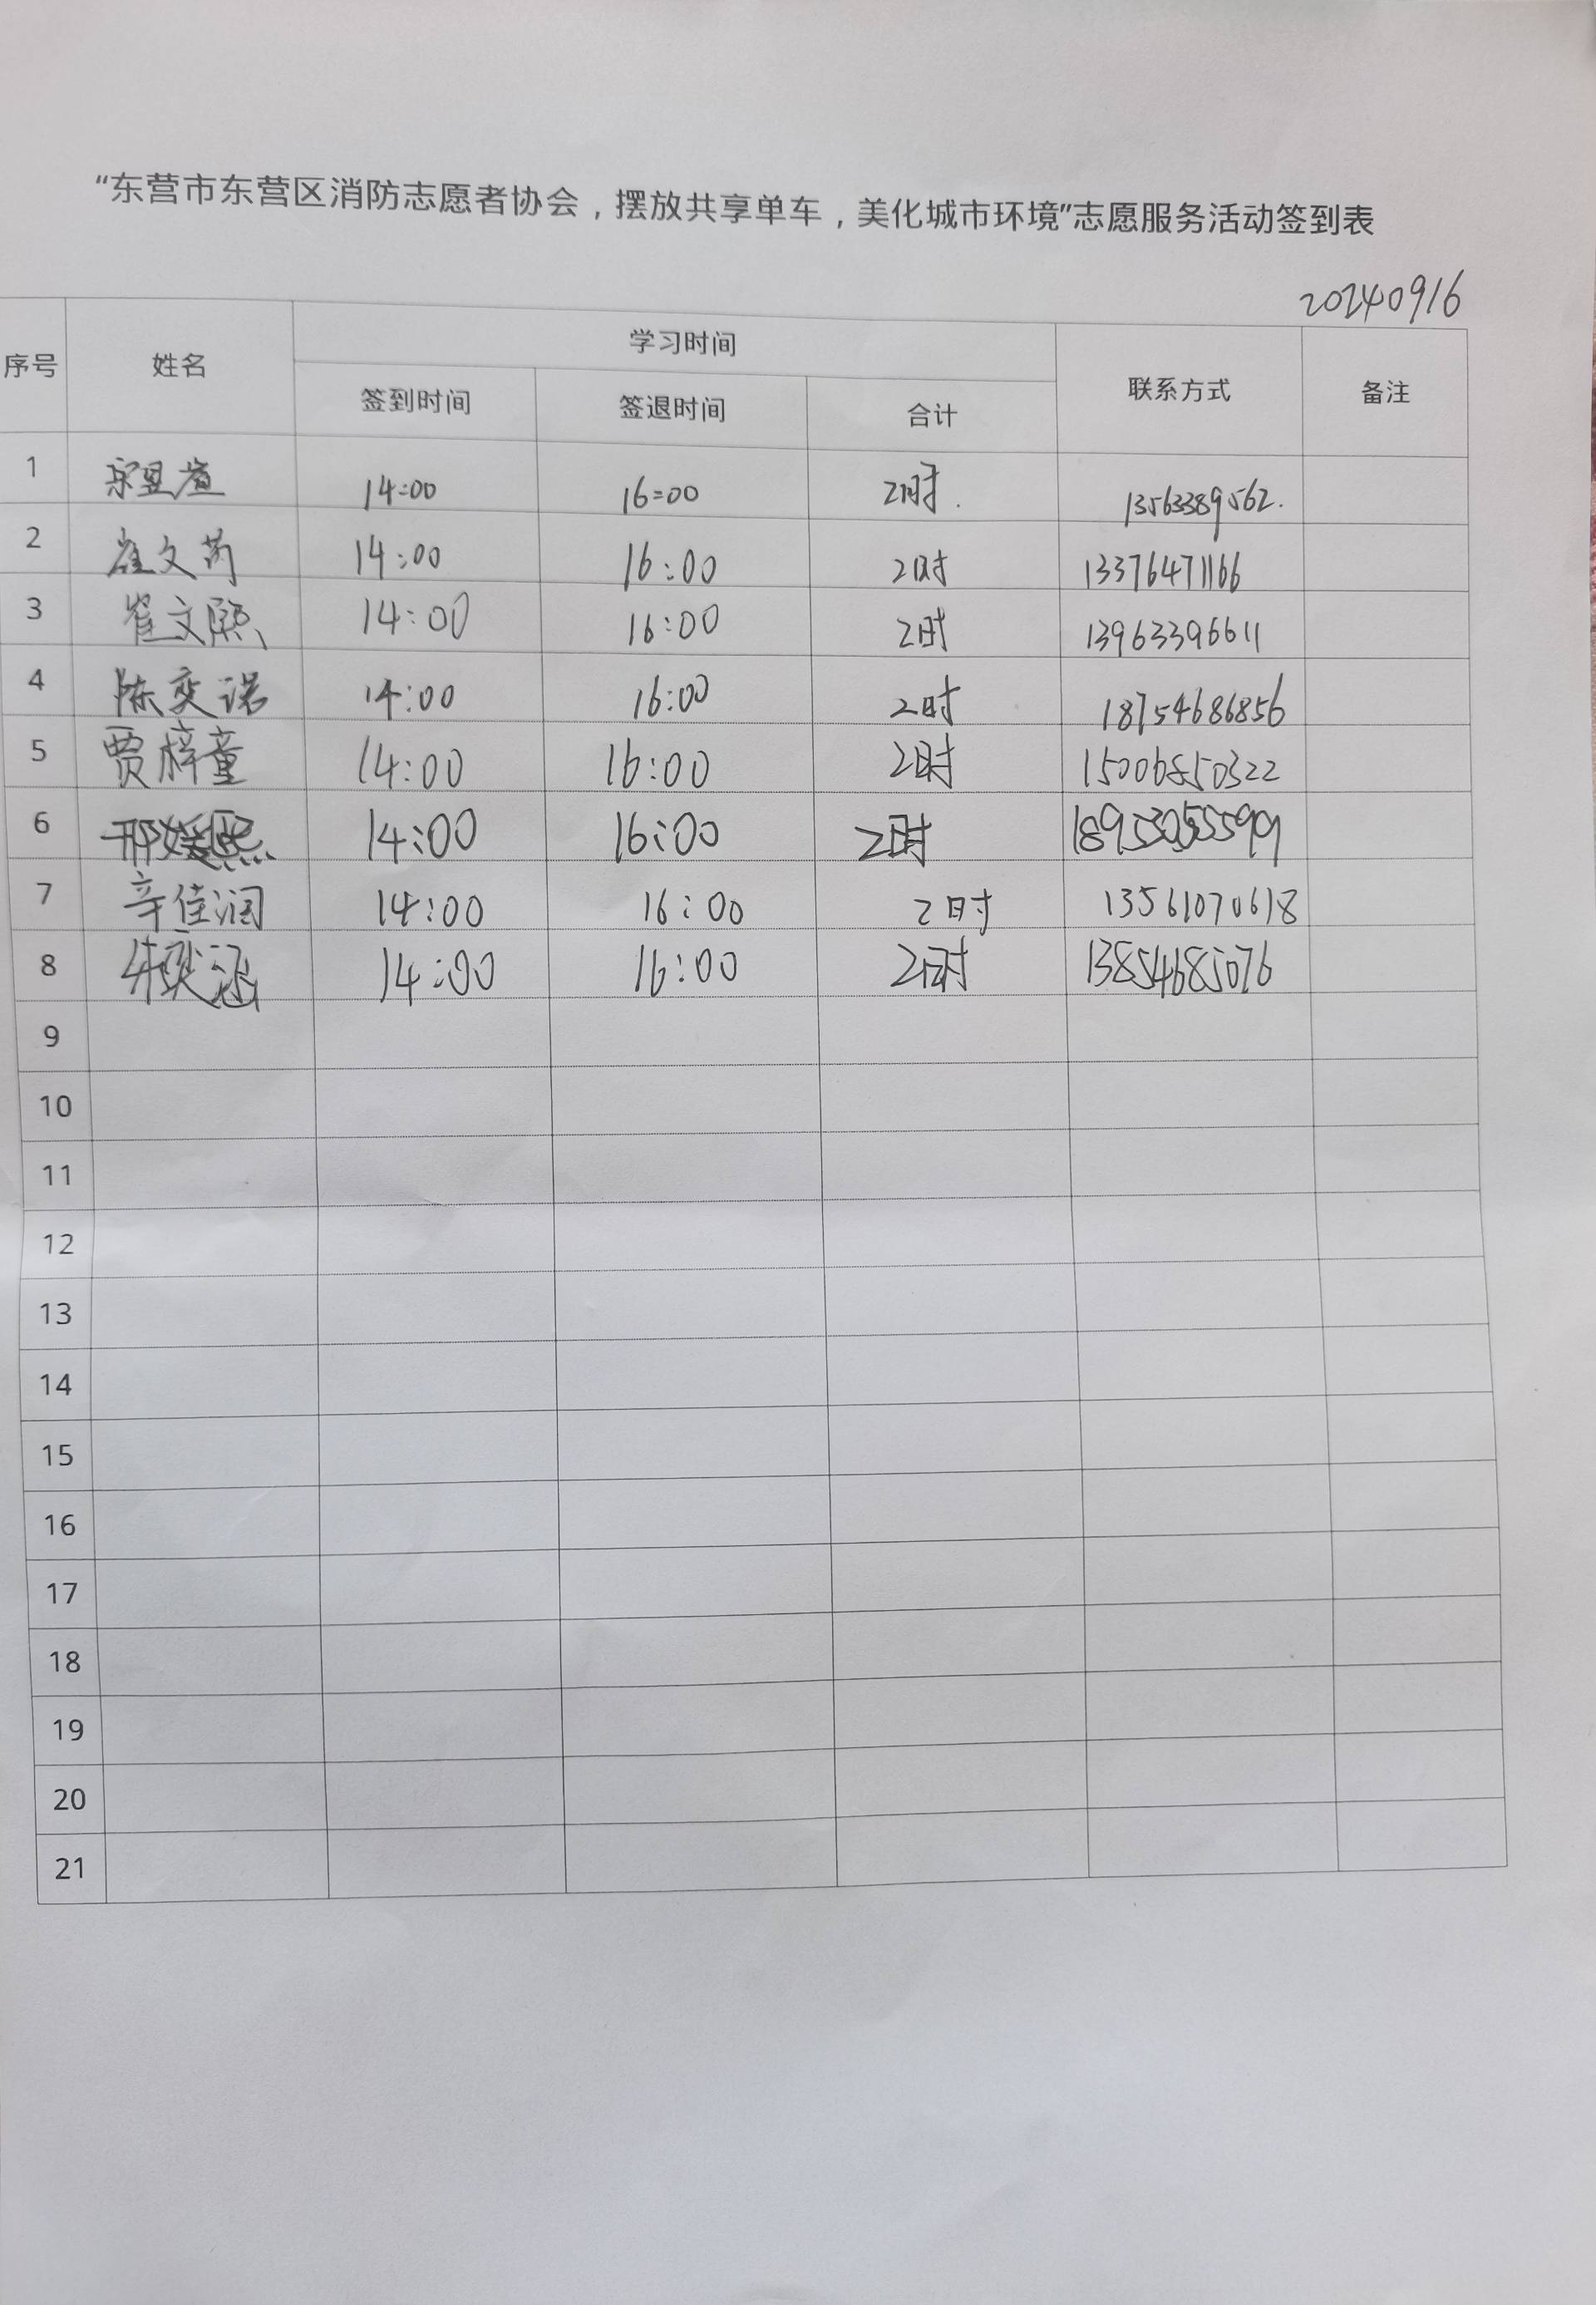 “东营市东营区消防志愿者协会，摆放共享单车，美化城市环境”志愿服务活动签到表
20240916
序号 姓名 学习时间 联系方式 备注
签到时间 签退时间 合计
1 14:00 16:00 2时. 13563389562.
2 崔文芮 14:00 16:00 2时 13376471166
3 崔文熙 14:00 16:00 2时 13963396611
4 陈奕诺 14:00 16:00 2时 18754686856
5 贾梓童 14:00 16:00 2时 15006850322
6 邢媛熙 14:00 16:00 2时
7 辛佳润 14:00 16:00 2时 13561070618
8 朱奕涵 14:00 16:00 2时 13854685076
9
10
11
12
13
14
15
16
17
18
19
20
21